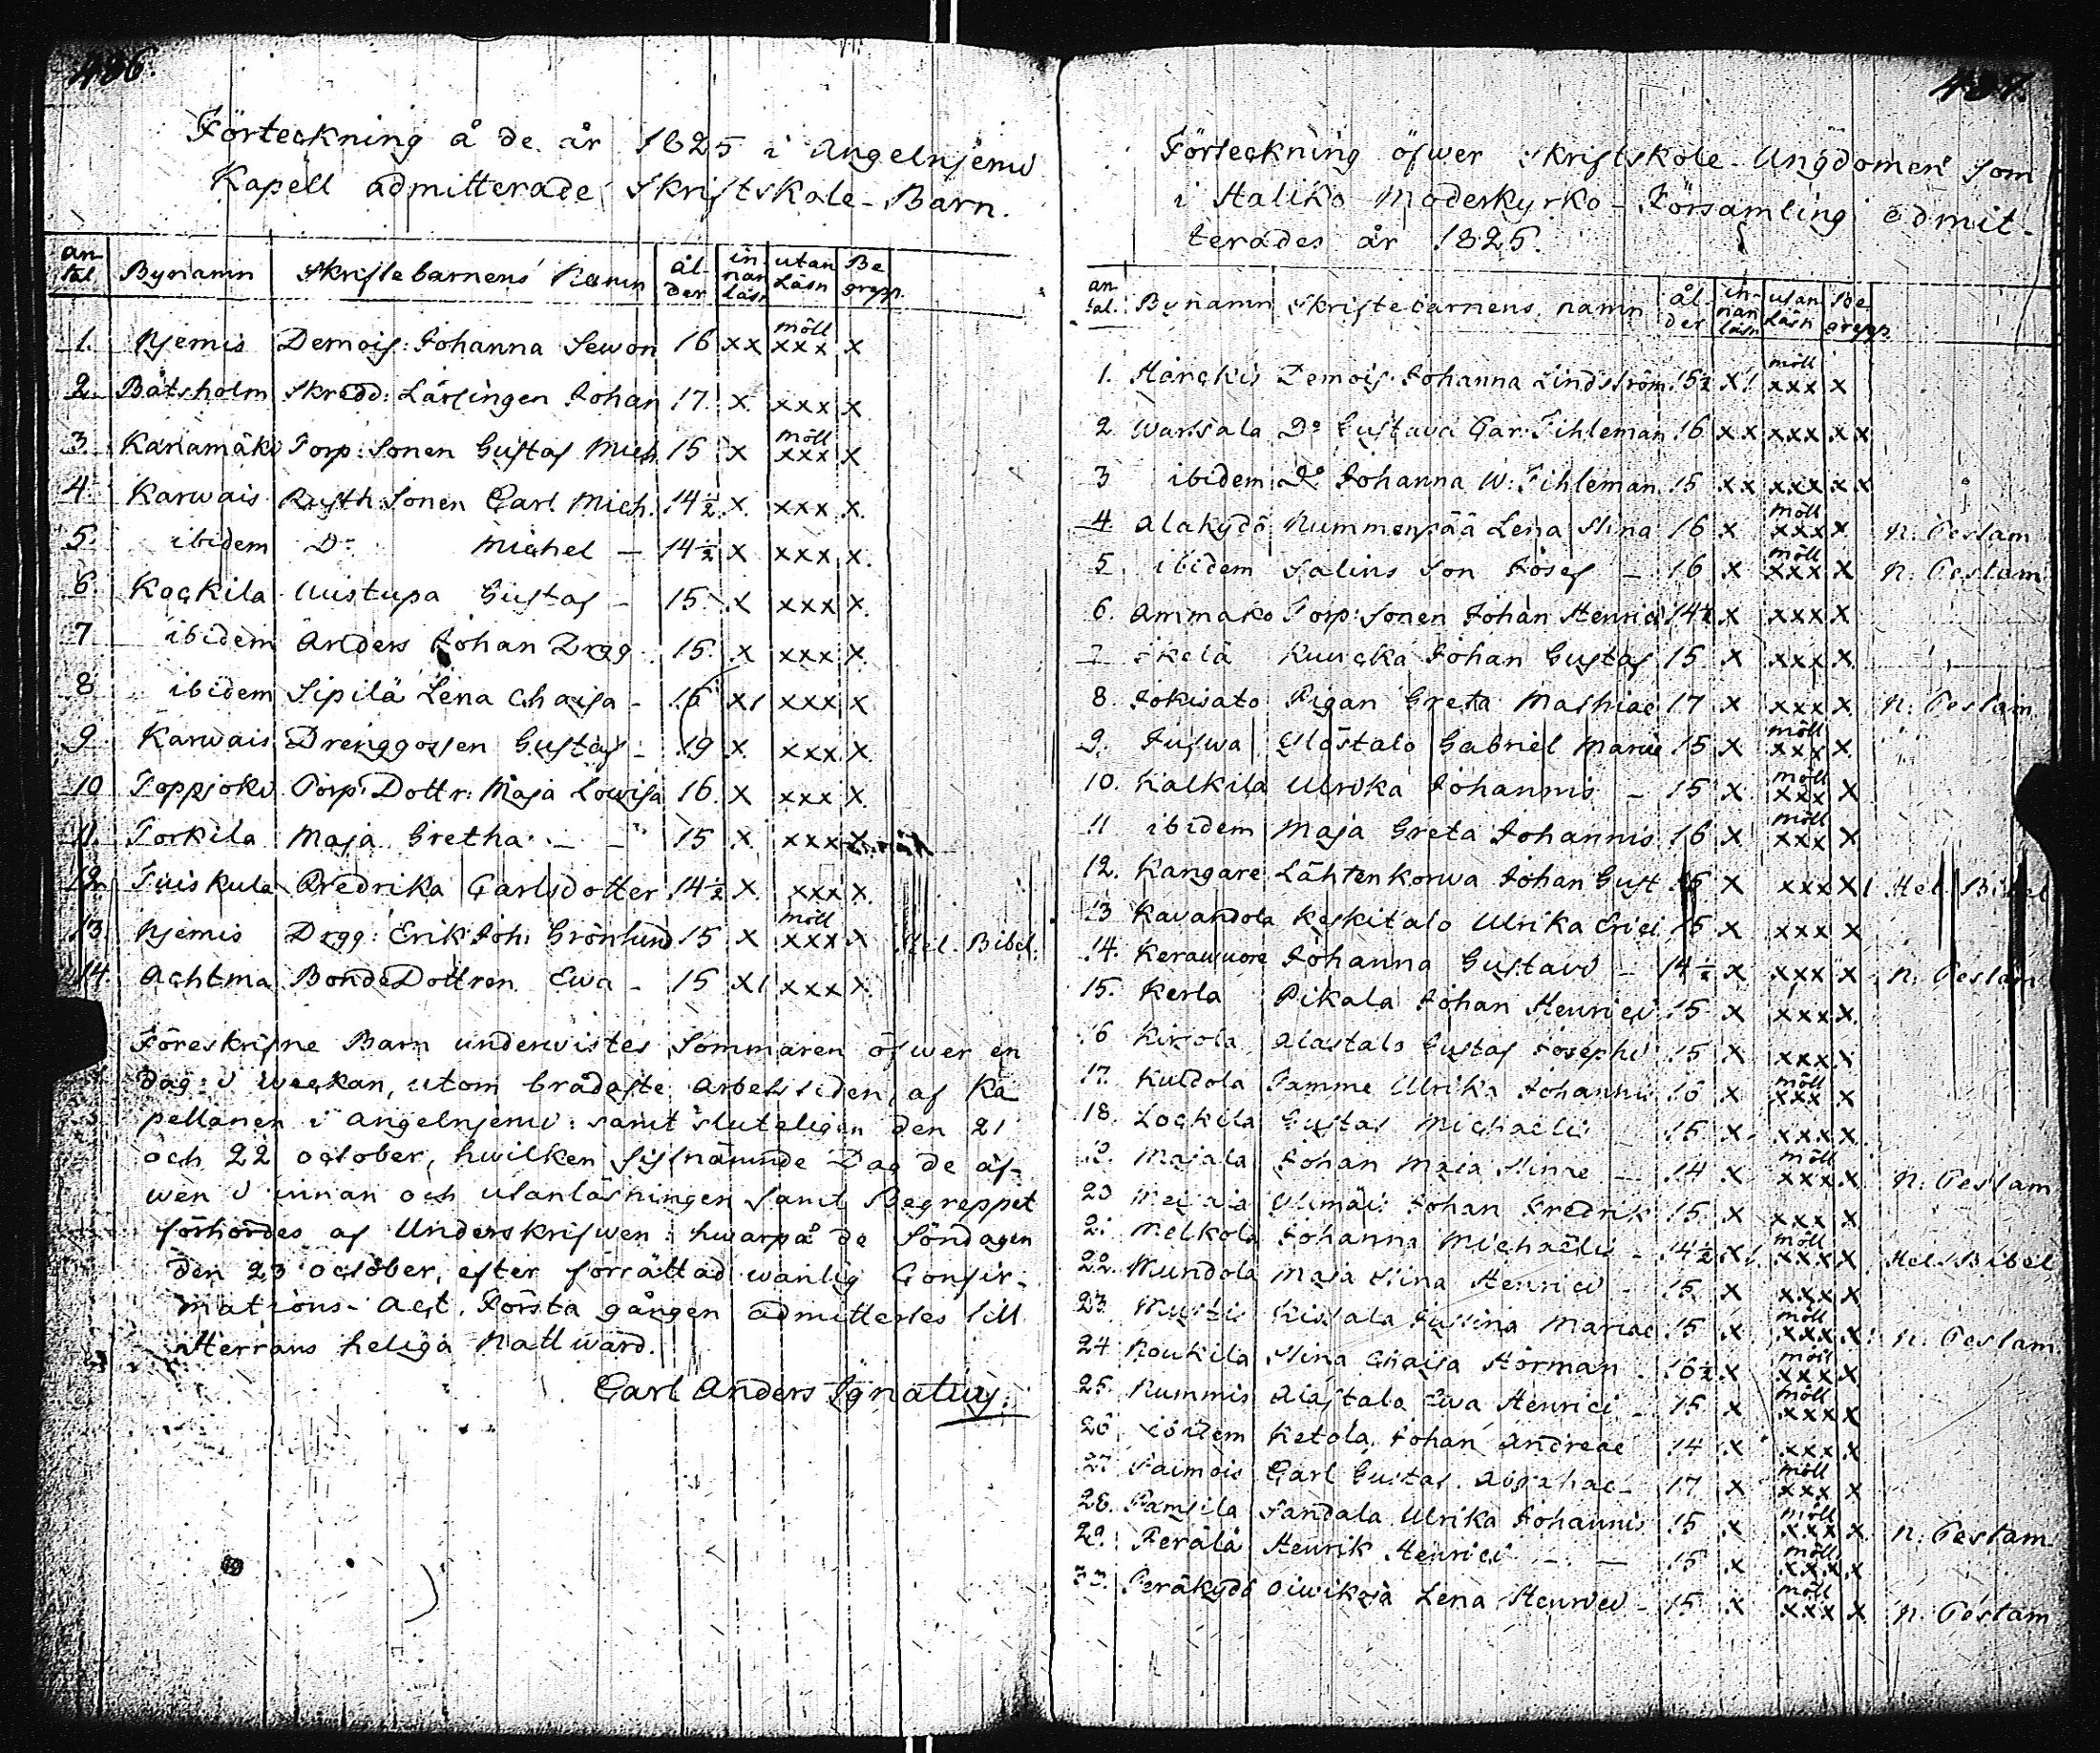 486.
Förteckning å de år 1825 i Angelnjemi
Kapell admitterade Skriftskole-Barn.
an-tal | Bynamn | Skriftebarnens Namn | ål-der | in-nan läsn | utan Läsn | Be grepp.
1. Njemis Demois: Johanna Sewon 16 xx möll xxx x
2. Båtsholm Skrädd: Lärlingen Johan 17. x xxx x
3. Kanamäki Torp: Sonen Gustaf Mich 15 x möll xxx x
4 Karwais Rusth: Sonen Carl Mich. 14½ x. xxx x.
5. ibidem Do Michel – 14½ x xxx x.
6. Kockila Uustupa Gustaf – 15. x xxx x.
7 ibidem Anders Johan Drgg 15. x xxx x.
8 ibidem Sipilä Lena Chaisa – 15 x1 xxx x
9 Karwais Drenggossen Gustaf – 19 x. xxx x.
10 Toppjoki Torp: Dottr: Maja Lowisa 16. x xxx x.
11. Torkila Maja Gretha – – 15 x. xxx
12. Tuiskula Fredrika Carlsdotter 14½ x. xxx x.
13. Njemis Drgg: Erik Joh: Grönlund 15 x möll xxx x Hel. Bibel.
14. Achtma BondeDottren Ewa – 15 x1 xxx x.
Föreskrifne Barn underwistes Sommaren öfwer en
dag i weckan, utom brådaste arbetstiden, af Ka
pellanen i Angelnjemi: samt sluteligen den 21
och 22 october, hwilken sistnämnde Dag de äf-
wen i innan och utanläsningen samt Begreppet
förhördes af Underskrifwen: hwarpå de Söndagen
den 23 october, efter förrättad wanlig Confir-
mations-Act, Första gången admittertes till
Herrans heliga Nattward.
Carl Anders Ignatius.
487.
Förteckning öfwer Skriftskole-Ungdomen som
i Haliko Moderkyrko-Församling admit-
terades år 1825.
an-tal. | Bynamn | Skriftebarnens namn | ål-der | in-nan läsn | utan Läsn | Be grepp.
1. Härckis Demois: Johanna Lindström 15½ x1 möll xxx x
2 Wartsala Do Gustava Car: Tihleman 16 xx xxx xx
3 ibidem Do Johanna W: Tihleman 15 xx xxx xx
4. Alakydö Nummenpää Lena Stina 16 x möll xxx x N. Testam
5. ibidem Salins Son Josef – 16 x möll xxx x N. Testam
6. Ammako Torp: Sonen Johan Henrici 14½ x xxx x
7 Ikelä Kuucka Johan Gustaf 15 x xxx x
8. Jokisato Pigan Greta Mathiae 17 x xxx x. N. Testam
9. Gabriel 15 x möll xxx x.
10. Kalkila Ulrika Johannis – 15 x möll xxx x
11 ibidem Maja Greta Johannis 16 x möll xxx x
12. Kangare Lähtenkorwa Johan Gust 15 x xxx x1 Hel. Bibel
13 Kavandola Keskitalo Ulrika Erici 15 x xxx x
14. Kerawuore Johanna Gustavi – 14½ x xxx x N. Testam
15. Kerla Pikala Johan Henrici 15 x xxx x.
16 Kirjola Alastalo Gustaf Josephi 15 x xxx x
17. Kuldola Tamme Ulrika Johannis 16 x möll xxx x
18. Lockila Gustaf Michaelis – 15 x. xxx x.
19. Majala Johan 14 x. möll xxx x. N. Testam
20 Johan Fredrik 15 x xxx x
21 Melkola Johanna Michaelis – 14½ x1. möll xxx x. Hel. Bibel
22. Mundola Maja Stina Henrici – 15 x xxx x
23. Justina Mariae 15 x. möll xxx x. N. Testam.
24 Noukila Stina Chaisa Hörman – 16½ x möll xxx x
25. Nummis Alastalo Ewa Henrici – 15 x möll xxx x
26 ibidem Ketola Johan Andreae 14 x xxx x
27 Paimois Carl Gustaf 17 x möll xxx x
28. Sandala Ulrika Johannis 15 x möll xxx x N. Testam
29. Perälä Henrik Henrici – – 15 x möll xxx x
30. Peräkydö Oiwikoja Lena Henrici – 15 x möll xxx x N. Testam